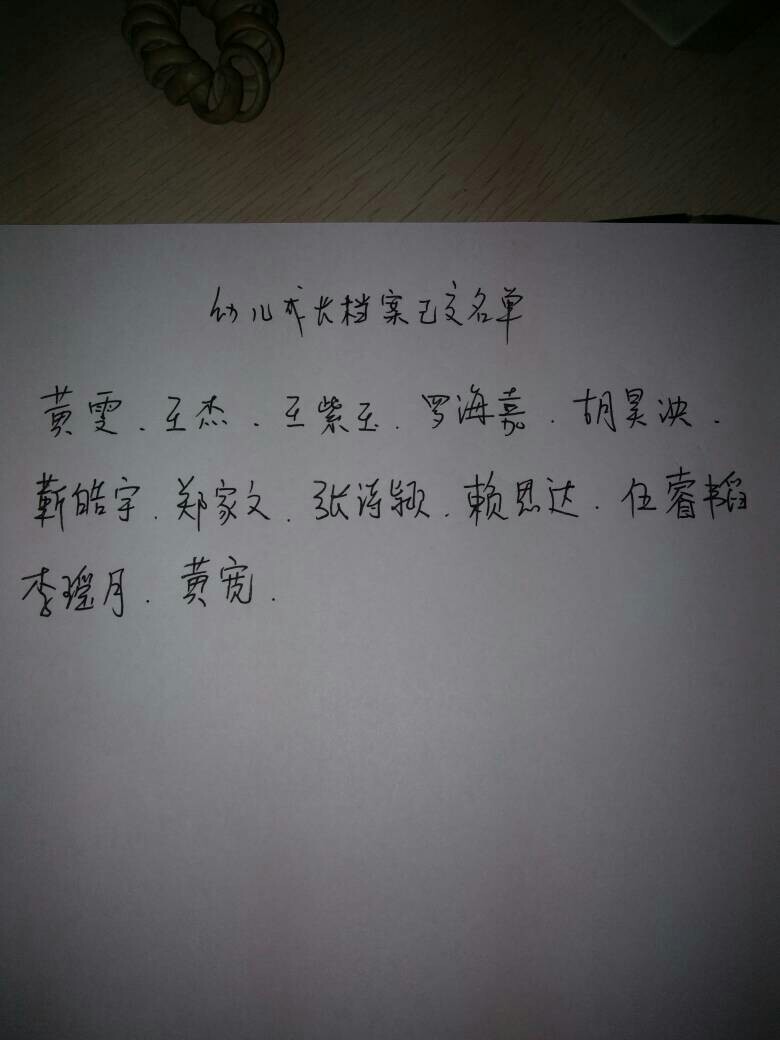 幼儿成长档案已交名单
黄雯、王杰、王紫玉、罗海嘉、胡昊泱、
靳皓宇、郑家文、张诗颖、赖思达、任睿韬
李瑶月、黄宽、